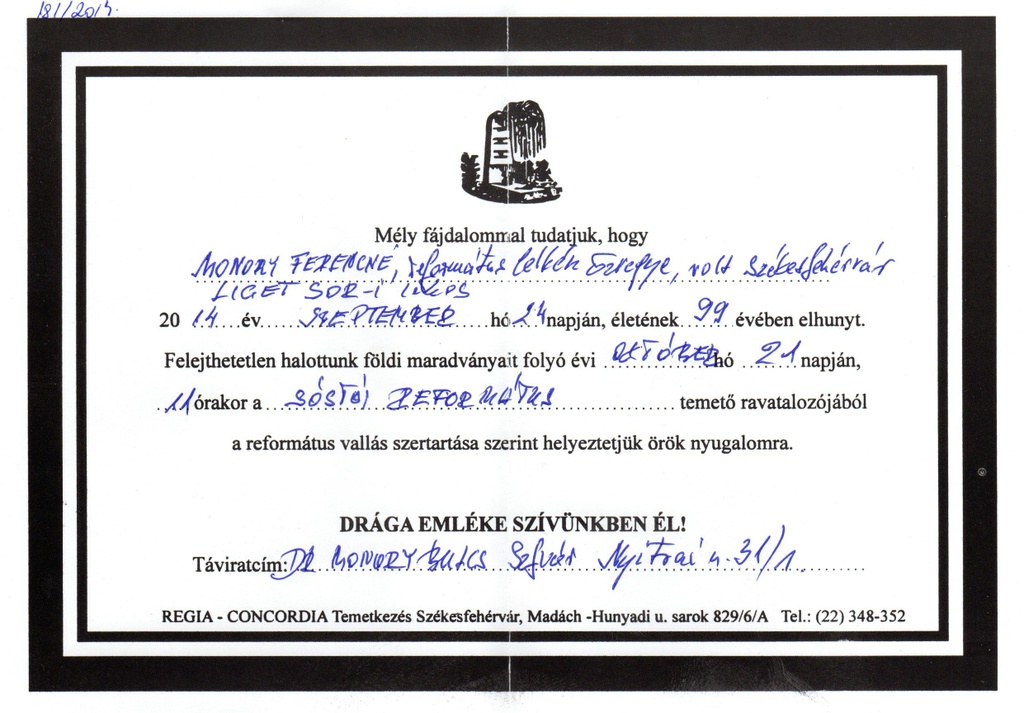 181/2014.
Mély fájdalommal tudatjuk, hogy
MONORY FERENCNÉ, református lelkész özvegye, volt Székesfehérvár
LIGET SOR-i lakos
20 14 év SZEPTEMBER hó 24 napján, életének 99 évében elhunyt.
Felejthetetlen halottunk földi maradványait folyó évi OKTÓBER hó 21 napján,
11 órakor a SÓSTÓI REFORMÁTUS temető ravatalozójából
a református vallás szertartása szerint helyeztetjük örök nyugalomra.
DRÁGA EMLÉKE SZÍVÜNKBEN ÉL!
Táviratcím: DR MONORY Szfvár Nyitrai u. 31/1.
REGIA - CONCORDIA Temetkezés Székesfehérvár, Madách -Hunyadi u. sarok 829/6/A Tel.: (22) 348-352